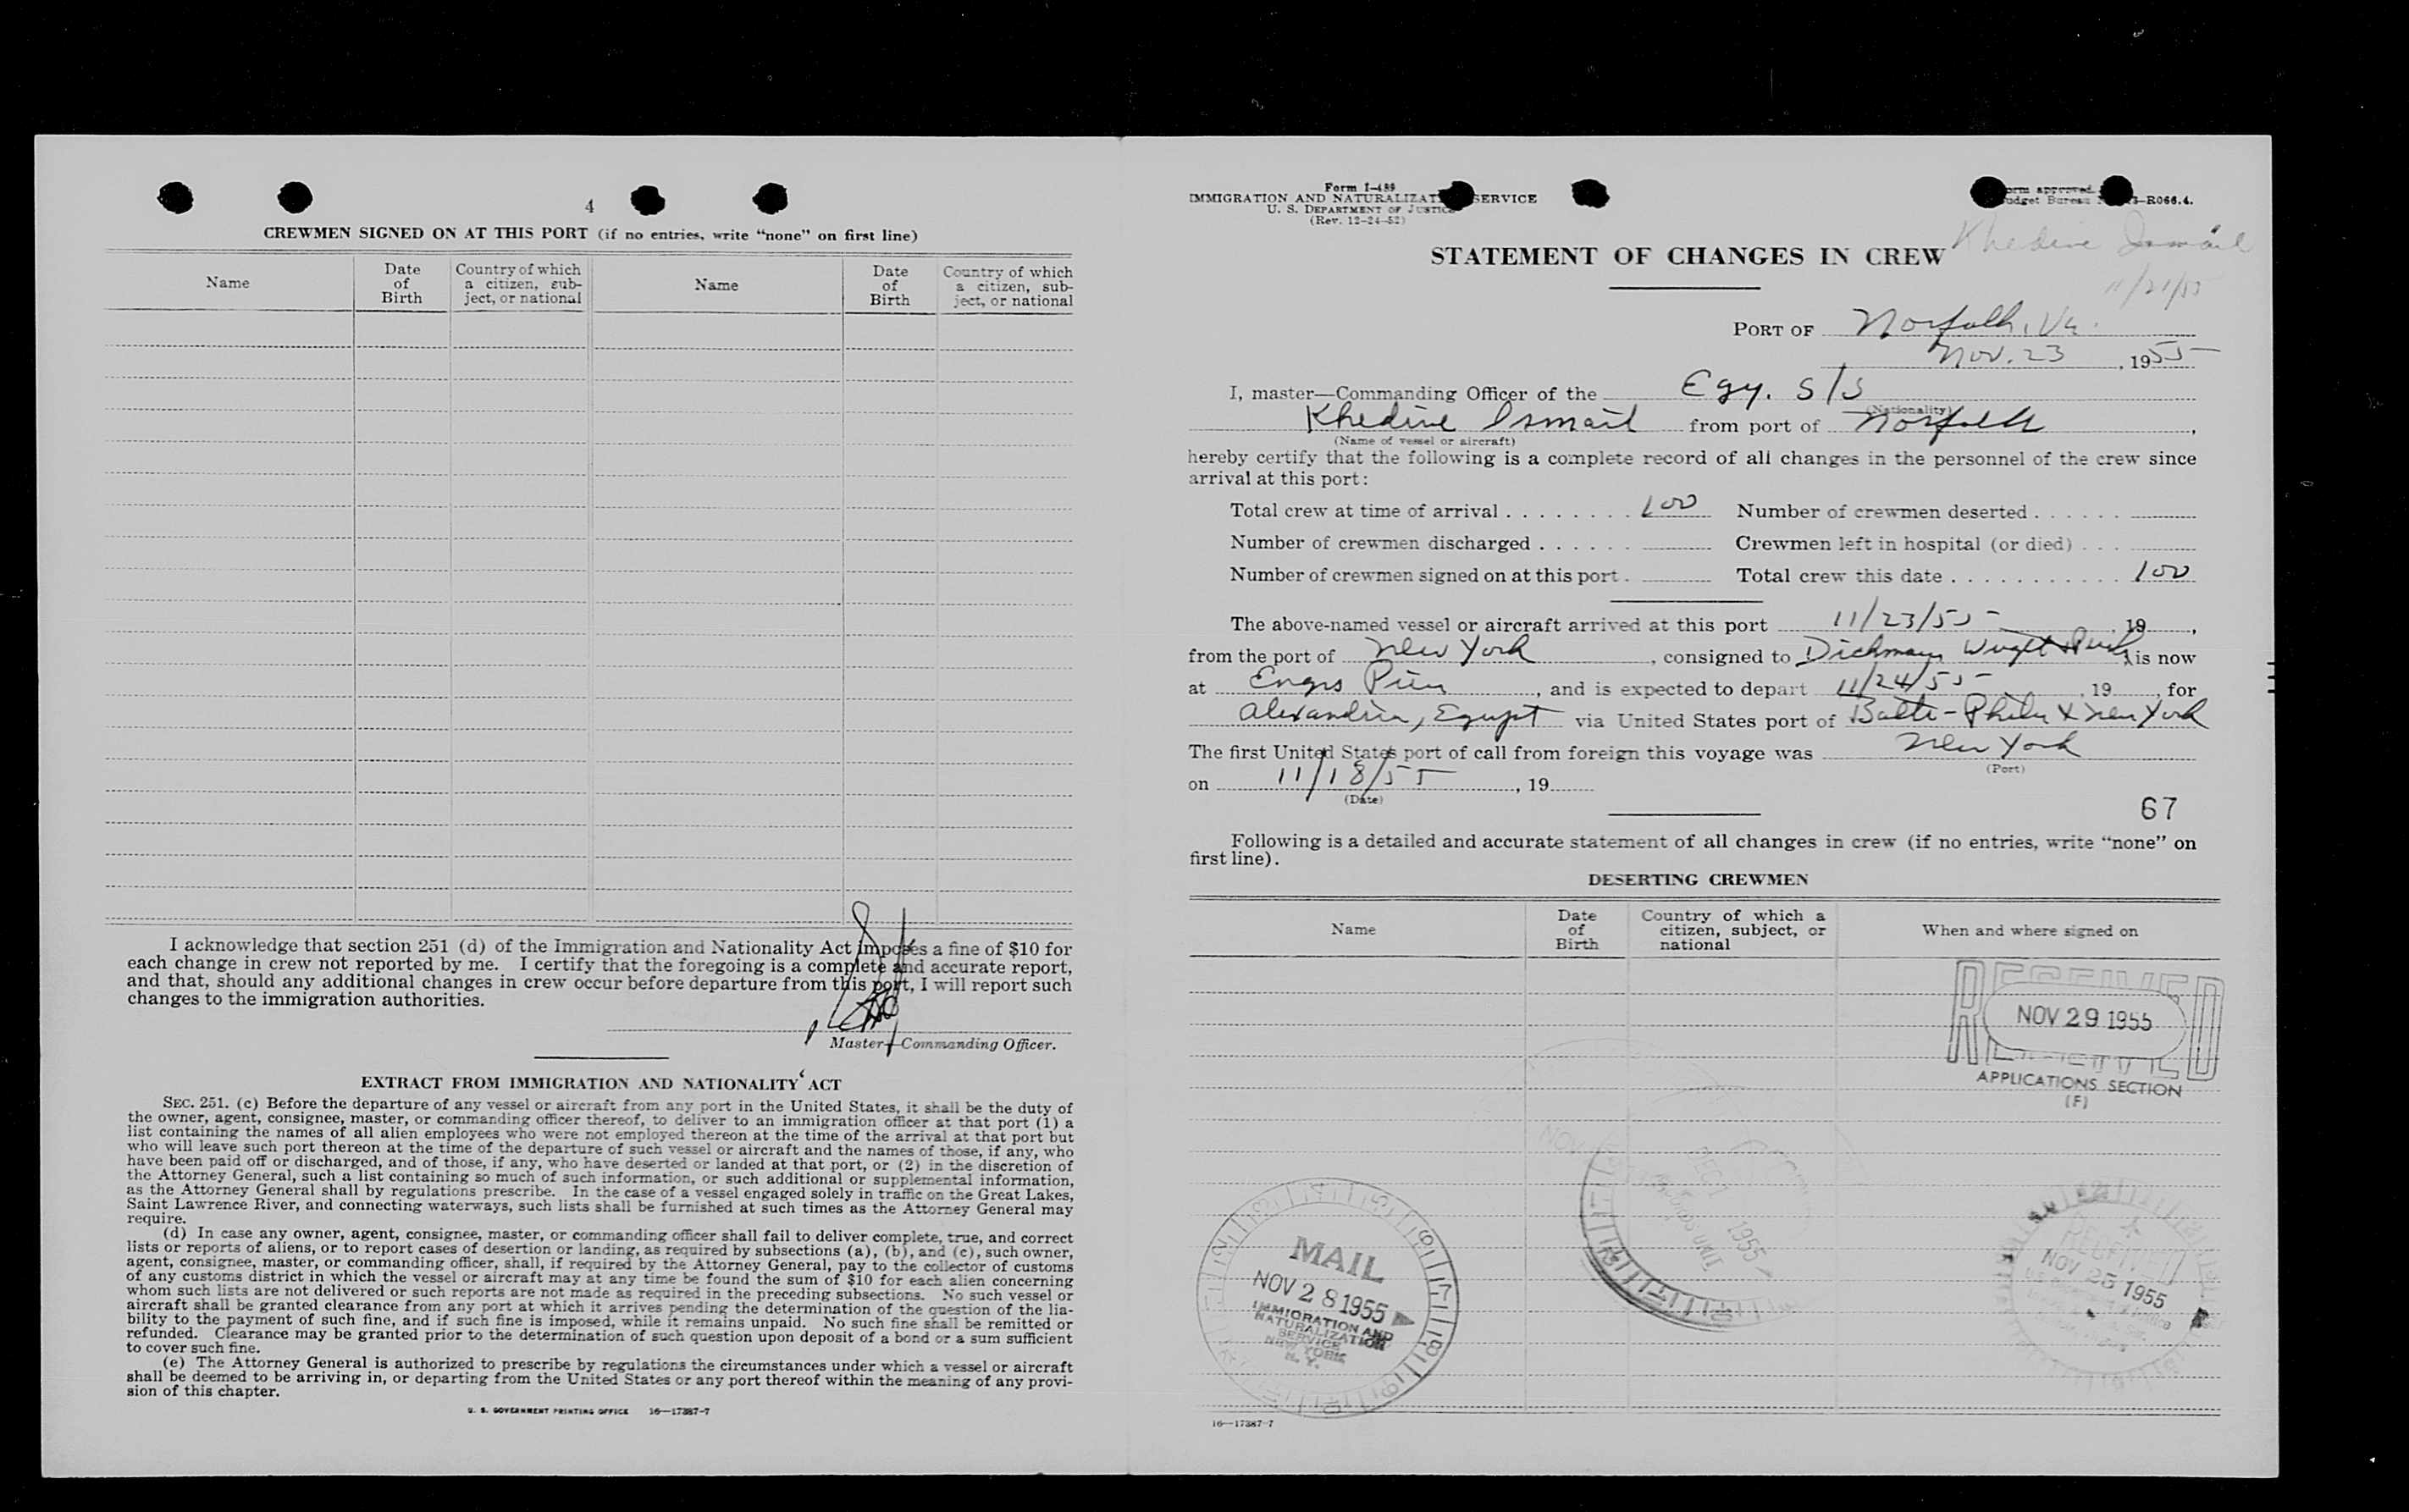 4
CREWMEN SIGNED ON AT THIS PORT (if no entries, write “none” on first line)
Name
Date of Birth
Country of which a citizen, sub-ject, or national
Name
Date of Birth
Country of which a citizen, sub-ject, or national
I acknowledge that section 251 (d) of the Immigration and Nationality Act imposes a fine of $10 for
each change in crew not reported by me. I certify that the foregoing is a complete and accurate report,
and that, should any additional changes in crew occur before departure from this port, I will report such
changes to the immigration authorities.
Master—Commanding Officer.
EXTRACT FROM IMMIGRATION AND NATIONALITY ACT
SEC. 251. (c) Before the departure of any vessel or aircraft from any port in the United States, it shall be the duty of
the owner, agent, consignee, master, or commanding officer thereof, to deliver to an immigration officer at that port (1) a
list containing the names of all alien employees who were not employed thereon at the time of the arrival at that port but
who will leave such port thereon at the time of the departure of such vessel or aircraft and the names of those, if any, who
have been paid off or discharged, and of those, if any, who have deserted or landed at that port, or (2) in the discretion of
the Attorney General, such a list containing so much of such information, or such additional or supplemental information,
as the Attorney General shall by regulations prescribe. In the case of a vessel engaged solely in traffic on the Great Lakes,
Saint Lawrence River, and connecting waterways, such lists shall be furnished at such times as the Attorney General may
require.
(d) In case any owner, agent, consignee, master, or commanding officer shall fail to deliver complete, true, and correct
lists or reports of aliens, or to report cases of desertion or landing, as required by subsections (a), (b), and (c), such owner,
agent, consignee, master, or commanding officer, shall, if required by the Attorney General, pay to the collector of customs
of any customs district in which the vessel or aircraft may at any time be found the sum of $10 for each alien concerning
whom such lists are not delivered or such reports are not made as required in the preceding subsections. No such vessel or
aircraft shall be granted clearance from any port at which it arrives pending the determination of the question of the lia-
bility to the payment of such fine, and if such fine is imposed, while it remains unpaid. No such fine shall be remitted or
refunded. Clearance may be granted prior to the determination of such question upon deposit of a bond or a sum sufficient
to cover such fine.
(e) The Attorney General is authorized to prescribe by regulations the circumstances under which a vessel or aircraft
shall be deemed to be arriving in, or departing from the United States or any port thereof within the meaning of any provi-
sion of this chapter.
U. S. GOVERNMENT PRINTING OFFICE 16—17387-7
Form I-489
IMMIGRATION AND NATURALIZAT SERVICE
U. S. DEPARTMENT OF JUSTICE
(Rev. 12-24-52)
orm approved.
udget Bureau -R066.4.
Khedive Ismail
11/21/55
STATEMENT OF CHANGES IN CREW
PORT OF Norfolk, Va.
Nov. 23, 1955
I, master—Commanding Officer of the Egy. S/S
(Nationality)
Khedive Ismail from port of Norfolk,
(Name of vessel or aircraft)
hereby certify that the following is a complete record of all changes in the personnel of the crew since
arrival at this port:
Total crew at time of arrival . . . . . . . . 100 Number of crewmen deserted . . . . . .
Number of crewmen discharged . . . . . . Crewmen left in hospital (or died) . . .
Number of crewmen signed on at this port . Total crew this date . . . . . . . . . . . 100
The above-named vessel or aircraft arrived at this port 11/23/55, 19,
from the port of New York, consigned to Dichmann, Wright & Pugh, is now
at Engrs Pier, and is expected to depart 11/24/55, 19, for
Alexandria, Egypt via United States port of Balto-Phila & New York
The first United States port of call from foreign this voyage was New York
(Port)
on 11/18/55, 19
(Date)
67
Following is a detailed and accurate statement of all changes in crew (if no entries, write “none” on
first line).
DESERTING CREWMEN
Name
Date of Birth
Country of which a citizen, subject, or national
When and where signed on
RECEIVED
NOV 29 1955
APPLICATIONS SECTION
(F)
MAIL
NOV 28 1955
IMMIGRATION AND
NATURALIZATION
SERVICE
NEW YORK
N. Y.
DEC 1 1955
RECEIVED
NOV 25 1955
16—17387-7